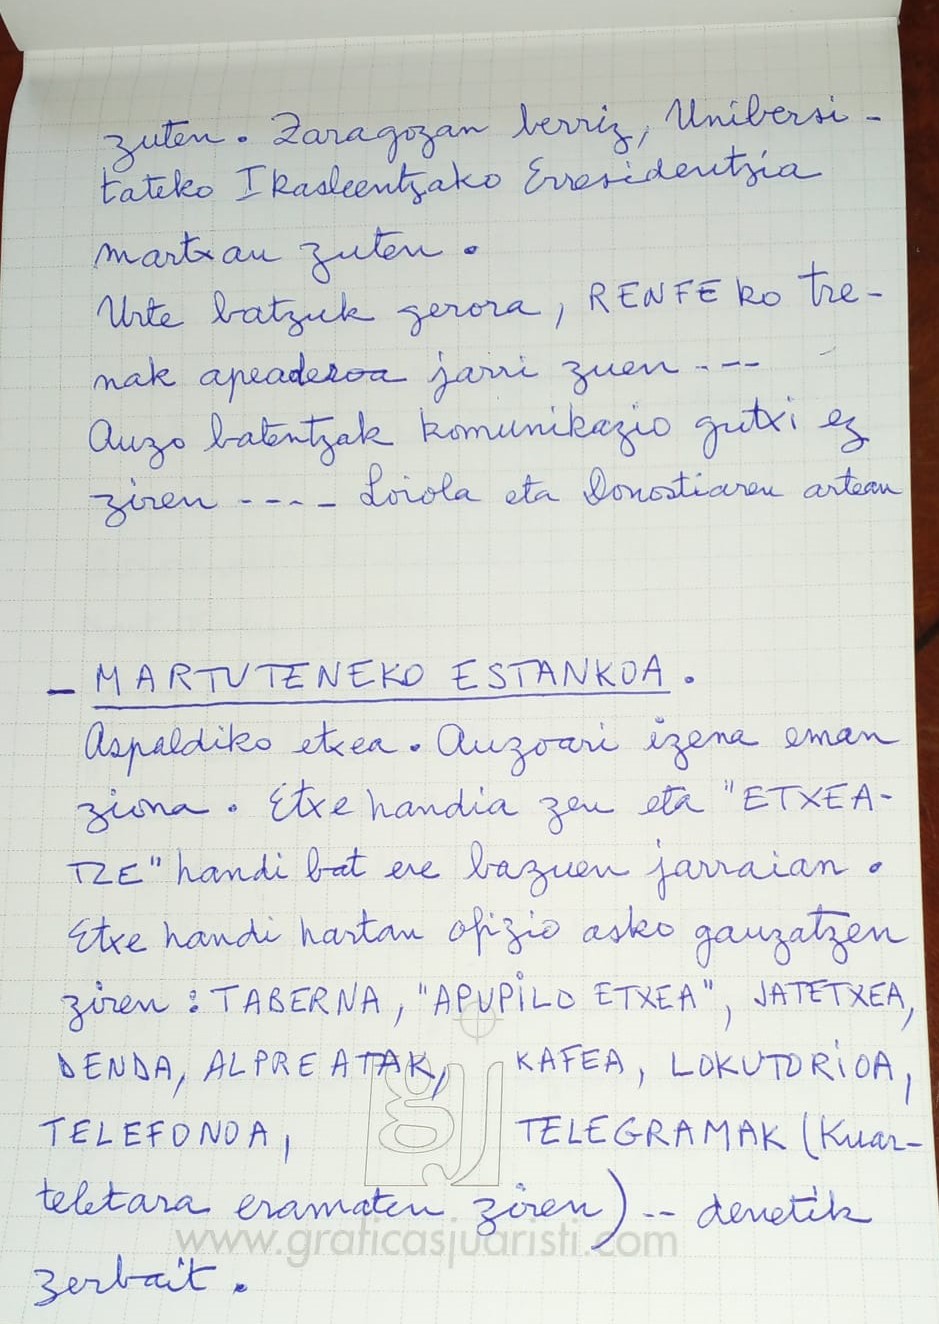 zuten. Zaragozan berriz, Unibersi-
tateko Ikasleentzako Erresidentzia
martxan zuten.
Urte batzuk gerora, RENFEko tre-
nak apeaderoa jarri zuen ---
Auzo batentzak komunikazio gutxi ez
ziren ---- Loiola eta Donostiaren artean
- MARTUTENEKO ESTANKOA.
Aspaldiko etxea. Auzoari izena eman
ziona. Etxe handia zen eta "ETXEA-
TZE" handi bat ere bazuen jarraian.
Etxe handi hartan ofizio asko gauzatzen
ziren: TABERNA, "APUPILO ETXEA", JATETXEA,
DENDA, ALPREATAK, KAFEA, LOKUTORIOA,
TELEFONOA, TELEGRAMAK (Kuar-
teletara eramaten ziren) -- denetik
zerbait.
gj
www.graficasjuaristi.com